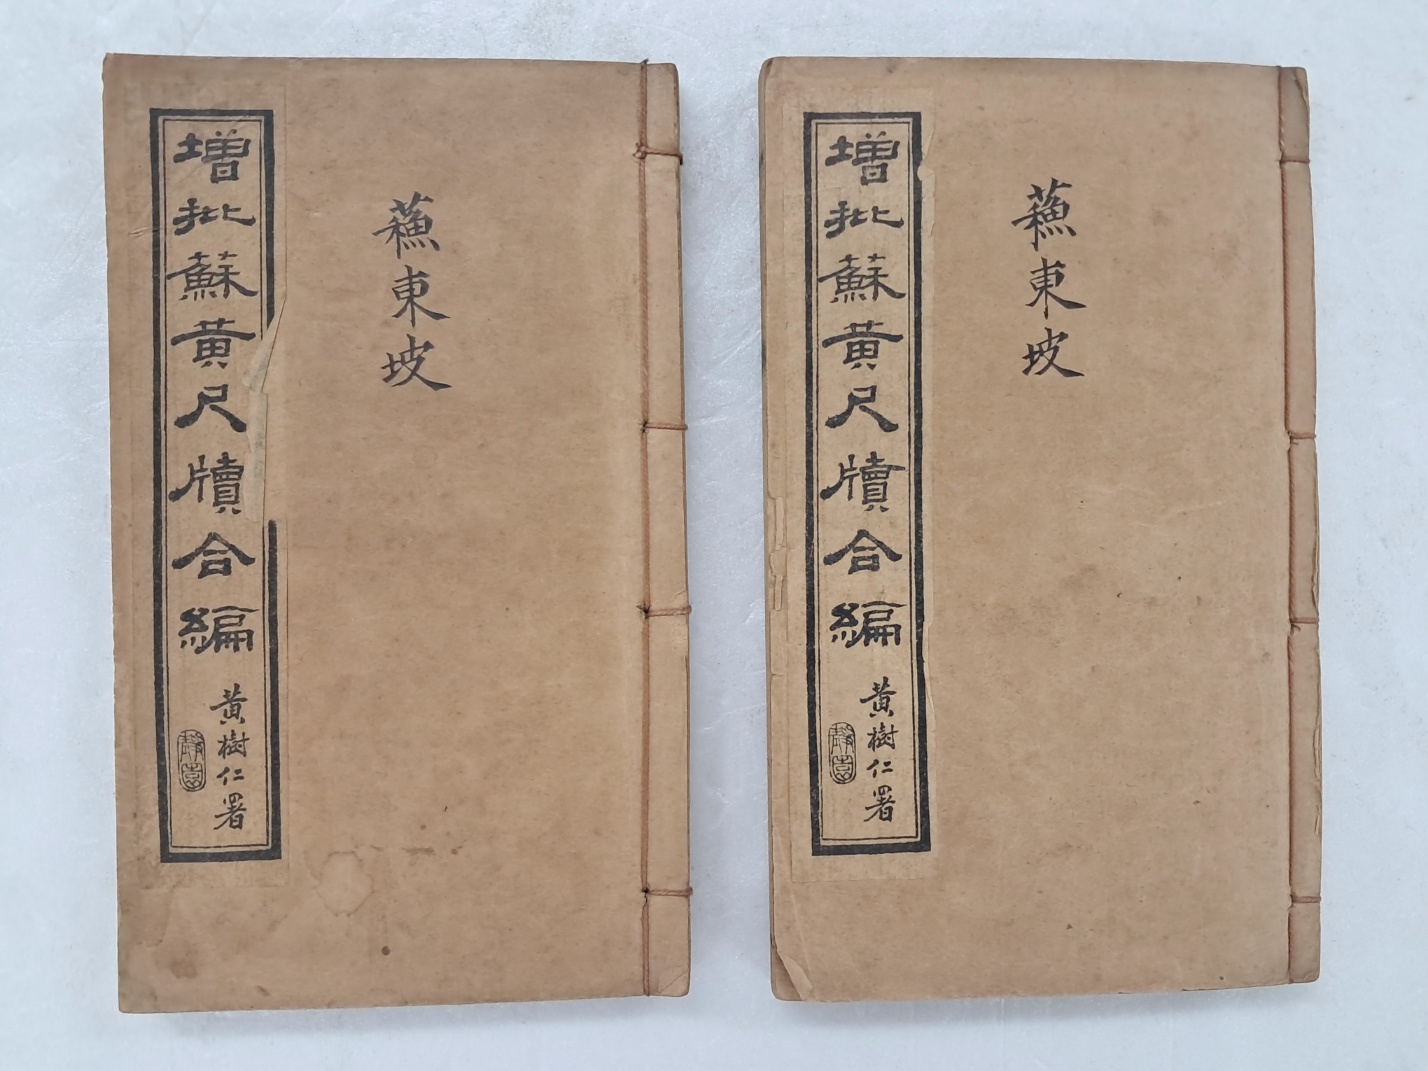 增批蘇黃尺牘合編
黃樹仁署
靜園
蘓東坡
增批蘇黃尺牘合編
黃樹仁署
靜園
蘓東坡